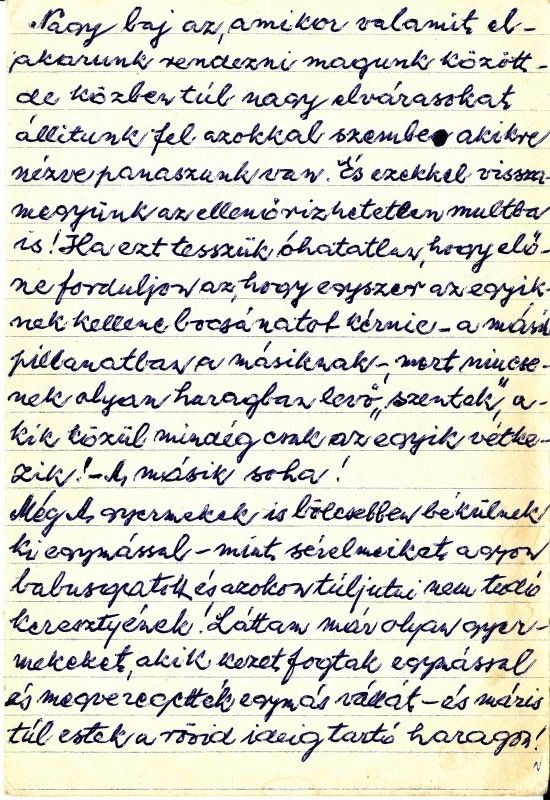 Nagy baj az, amikor valamit el-
akarunk rendezni magunk között -
de közben túl nagy elvárásokat
állitunk fel azokkal szembe akikre
nézve panaszunk van. És ezekkel vissza-
megyünk az ellenőrizhetetlen multba
is! Ha ezt tesszük óhatatlan, hogy elő-
ne forduljon az, hogy egyszer az egyik-
nek kellene bocsánatot kérnie - a másik
pillanatban a másiknak -, mert nincse-
nek olyan haragban levő „szentek", a-
kik közül mindég csak az egyik vétke-
zik! - A másik soha!
Még A gyermekek is bölcsebben békülnek
ki egymással - mint sérelmeiket agyon
babusgatók és azokon túljutni nem tudó
keresztyének! Láttam már olyan gyer-
mekeket, akik kezet fogtak egymással
és megveregették egymás vállát - és máris
túl estek a rövid ideig tartó haragon!